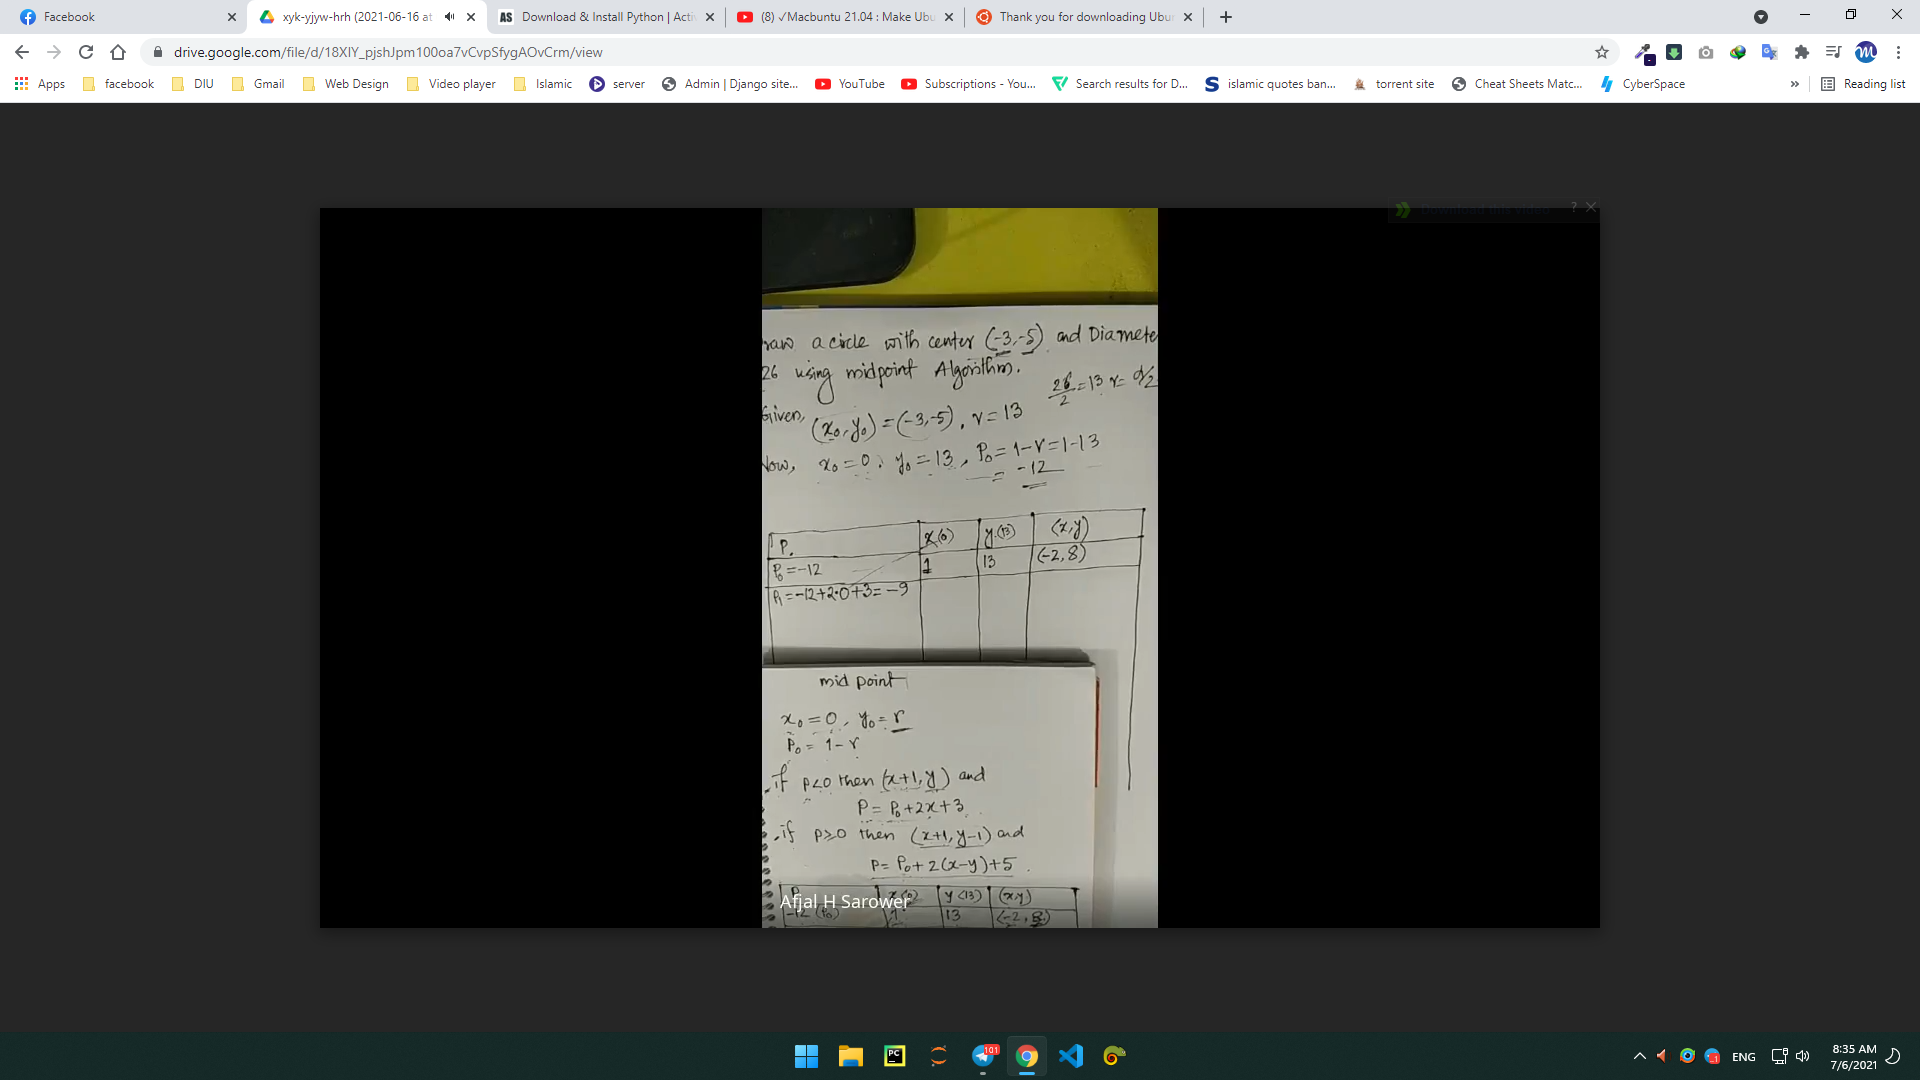 Facebook
xyk-yjyw-hrh (2021-06-16 at
Download & Install Python | Acti
(8) ✓Macbuntu 21.04 : Make Ubu
Thank you for downloading Ubu
drive.google.com/file/d/18XIY_pjshJpm100oa7vCvpSfygAOvCrm/view
Apps
facebook
DIU
Gmail
Web Design
Video player
Islamic
server
Admin | Django site...
YouTube
Subscriptions - You...
Search results for D...
islamic quotes ban...
torrent site
Cheat Sheets Matc...
CyberSpace
»
Reading list
Download this video ?
raw a circle with center (-3,-5) and Diamete
26 using midpoint Algorithm.
26/2 = 13 r = d/2
Given, (x₀,y₀) = (-3,-5), r = 13
Now, x₀ = 0, y₀ = 13, P₀ = 1-r = 1-13
= -12
P. x(0) y(13) (x,y)
P₀ = -12 1 13 (-2,8)
P₁ = -12+2·0+3 = -9
mid point
x₀ = 0, y₀ = r
P₀ = 1-r
.if P<0 then (x+1,y) and
P = P₀+2x+3
.if P≥0 then (x+1,y-1) and
P = P₀+2(x-y)+5.
P x(0) y(13) (x,y)
-12 (P₀) 1 13 (-2,8)
Afjal H Sarower
AS
PC
101
ENG
8:35 AM
7/6/2021